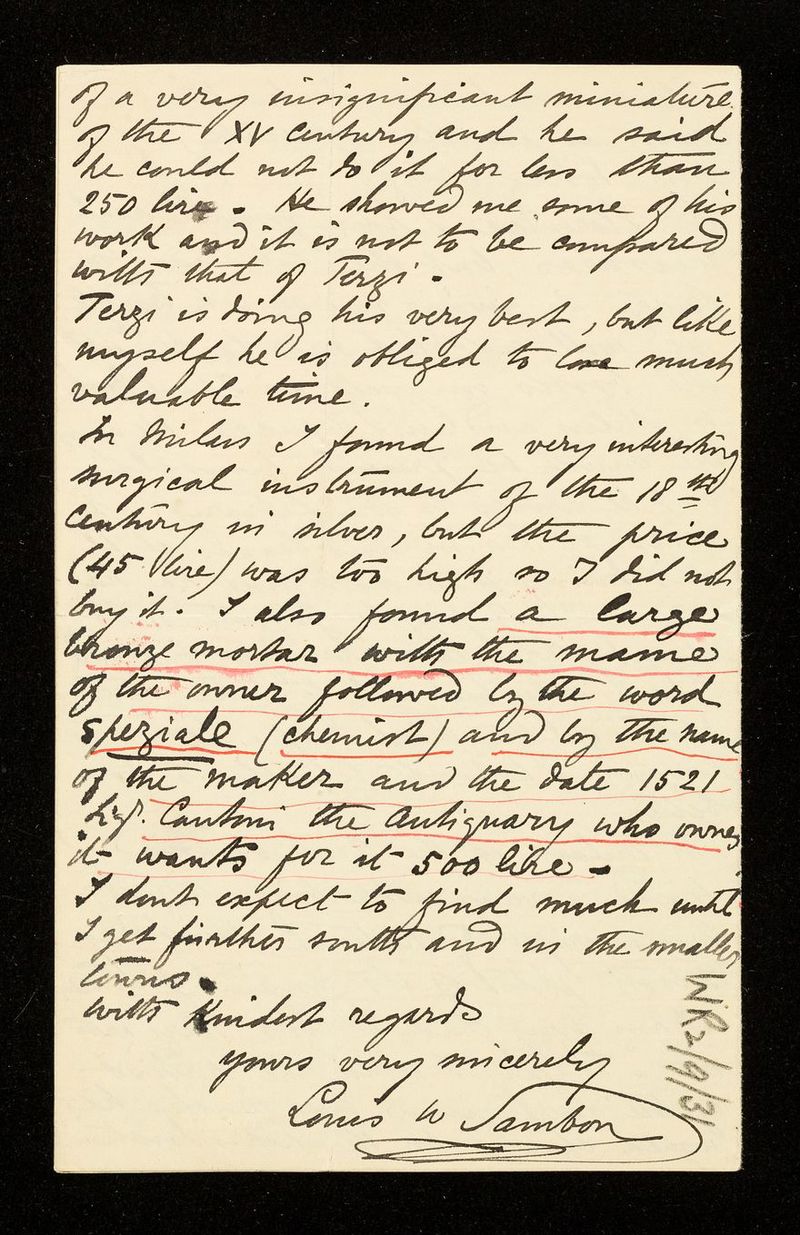 of a very insignificant miniature
of the XV century and he said
he could not do it for less than
250 lire. He showed me some of his
work and it is not to be compared
with that of Terzi.
Terzi is doing his very best, but like
myself he is obliged to lose much
valuable time.
In Milan I found a very interesting
surgical instrument of the 18th
century in silver, but the price
(45 lire) was too high so I did not
buy it. I also found a large
bronze mortar with the name
of the owner followed by the word
speziale (chemist) and by the name
of the maker and the date 1521
Sigr. Cantoni the Antiquary who owns
it wants for it 500 lire -
I dont expect to find much until
I get further south and in the smaller
towns.
With kindest regards
yours very sincerely
Louis W Sambon
WR2/9/31